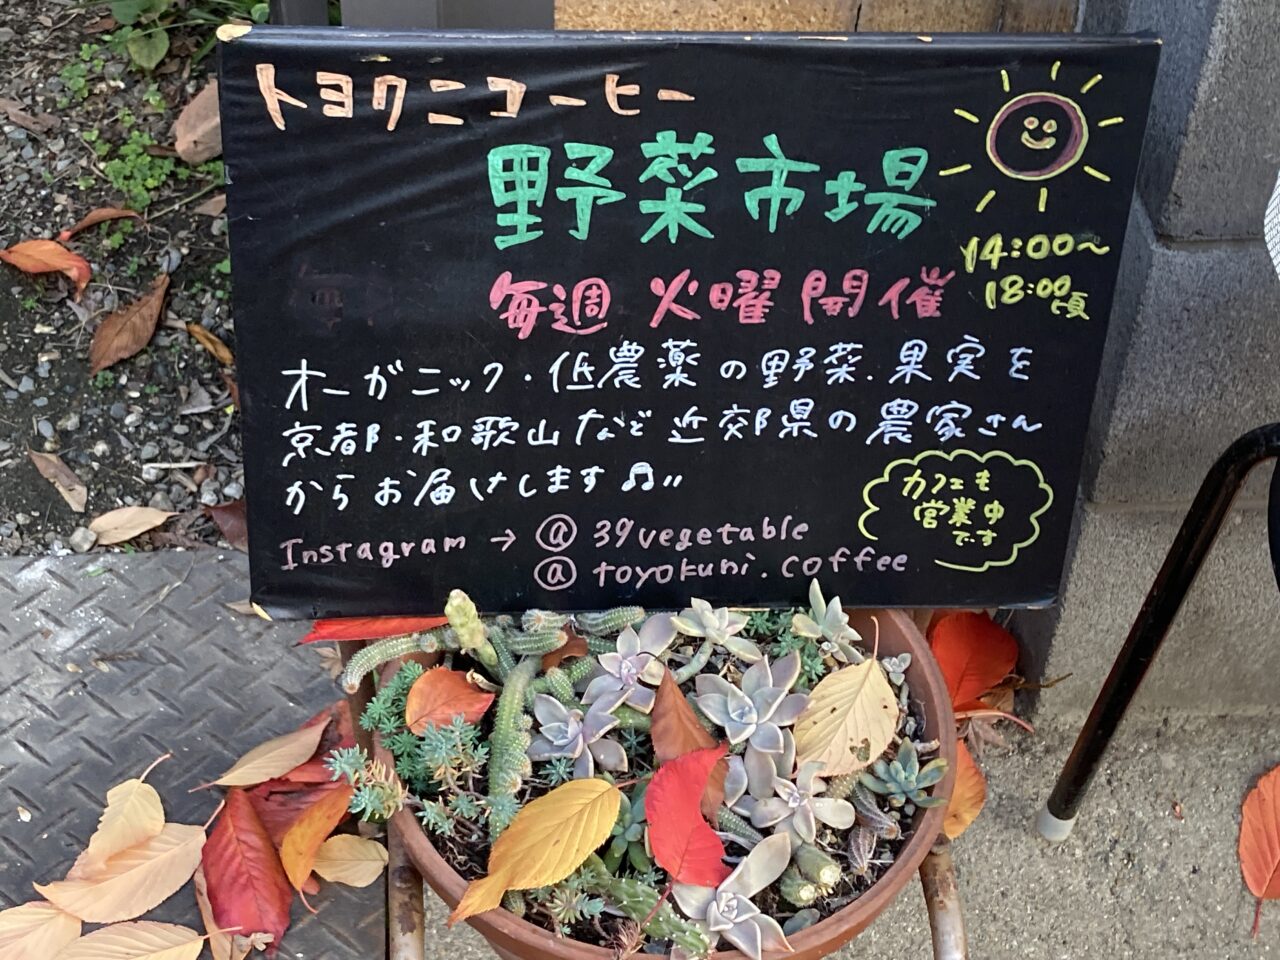 トヨクニコーヒー
野菜市場
毎週 火曜 開催
14:00〜
18:00頃
オーガニック・低農薬の野菜.果実を
京都・和歌山など近郊県の農家さん
からお届けします♫〃
カフェも
営業中
です
Instagram → @ 39vegetable
@ toyokuni.coffee